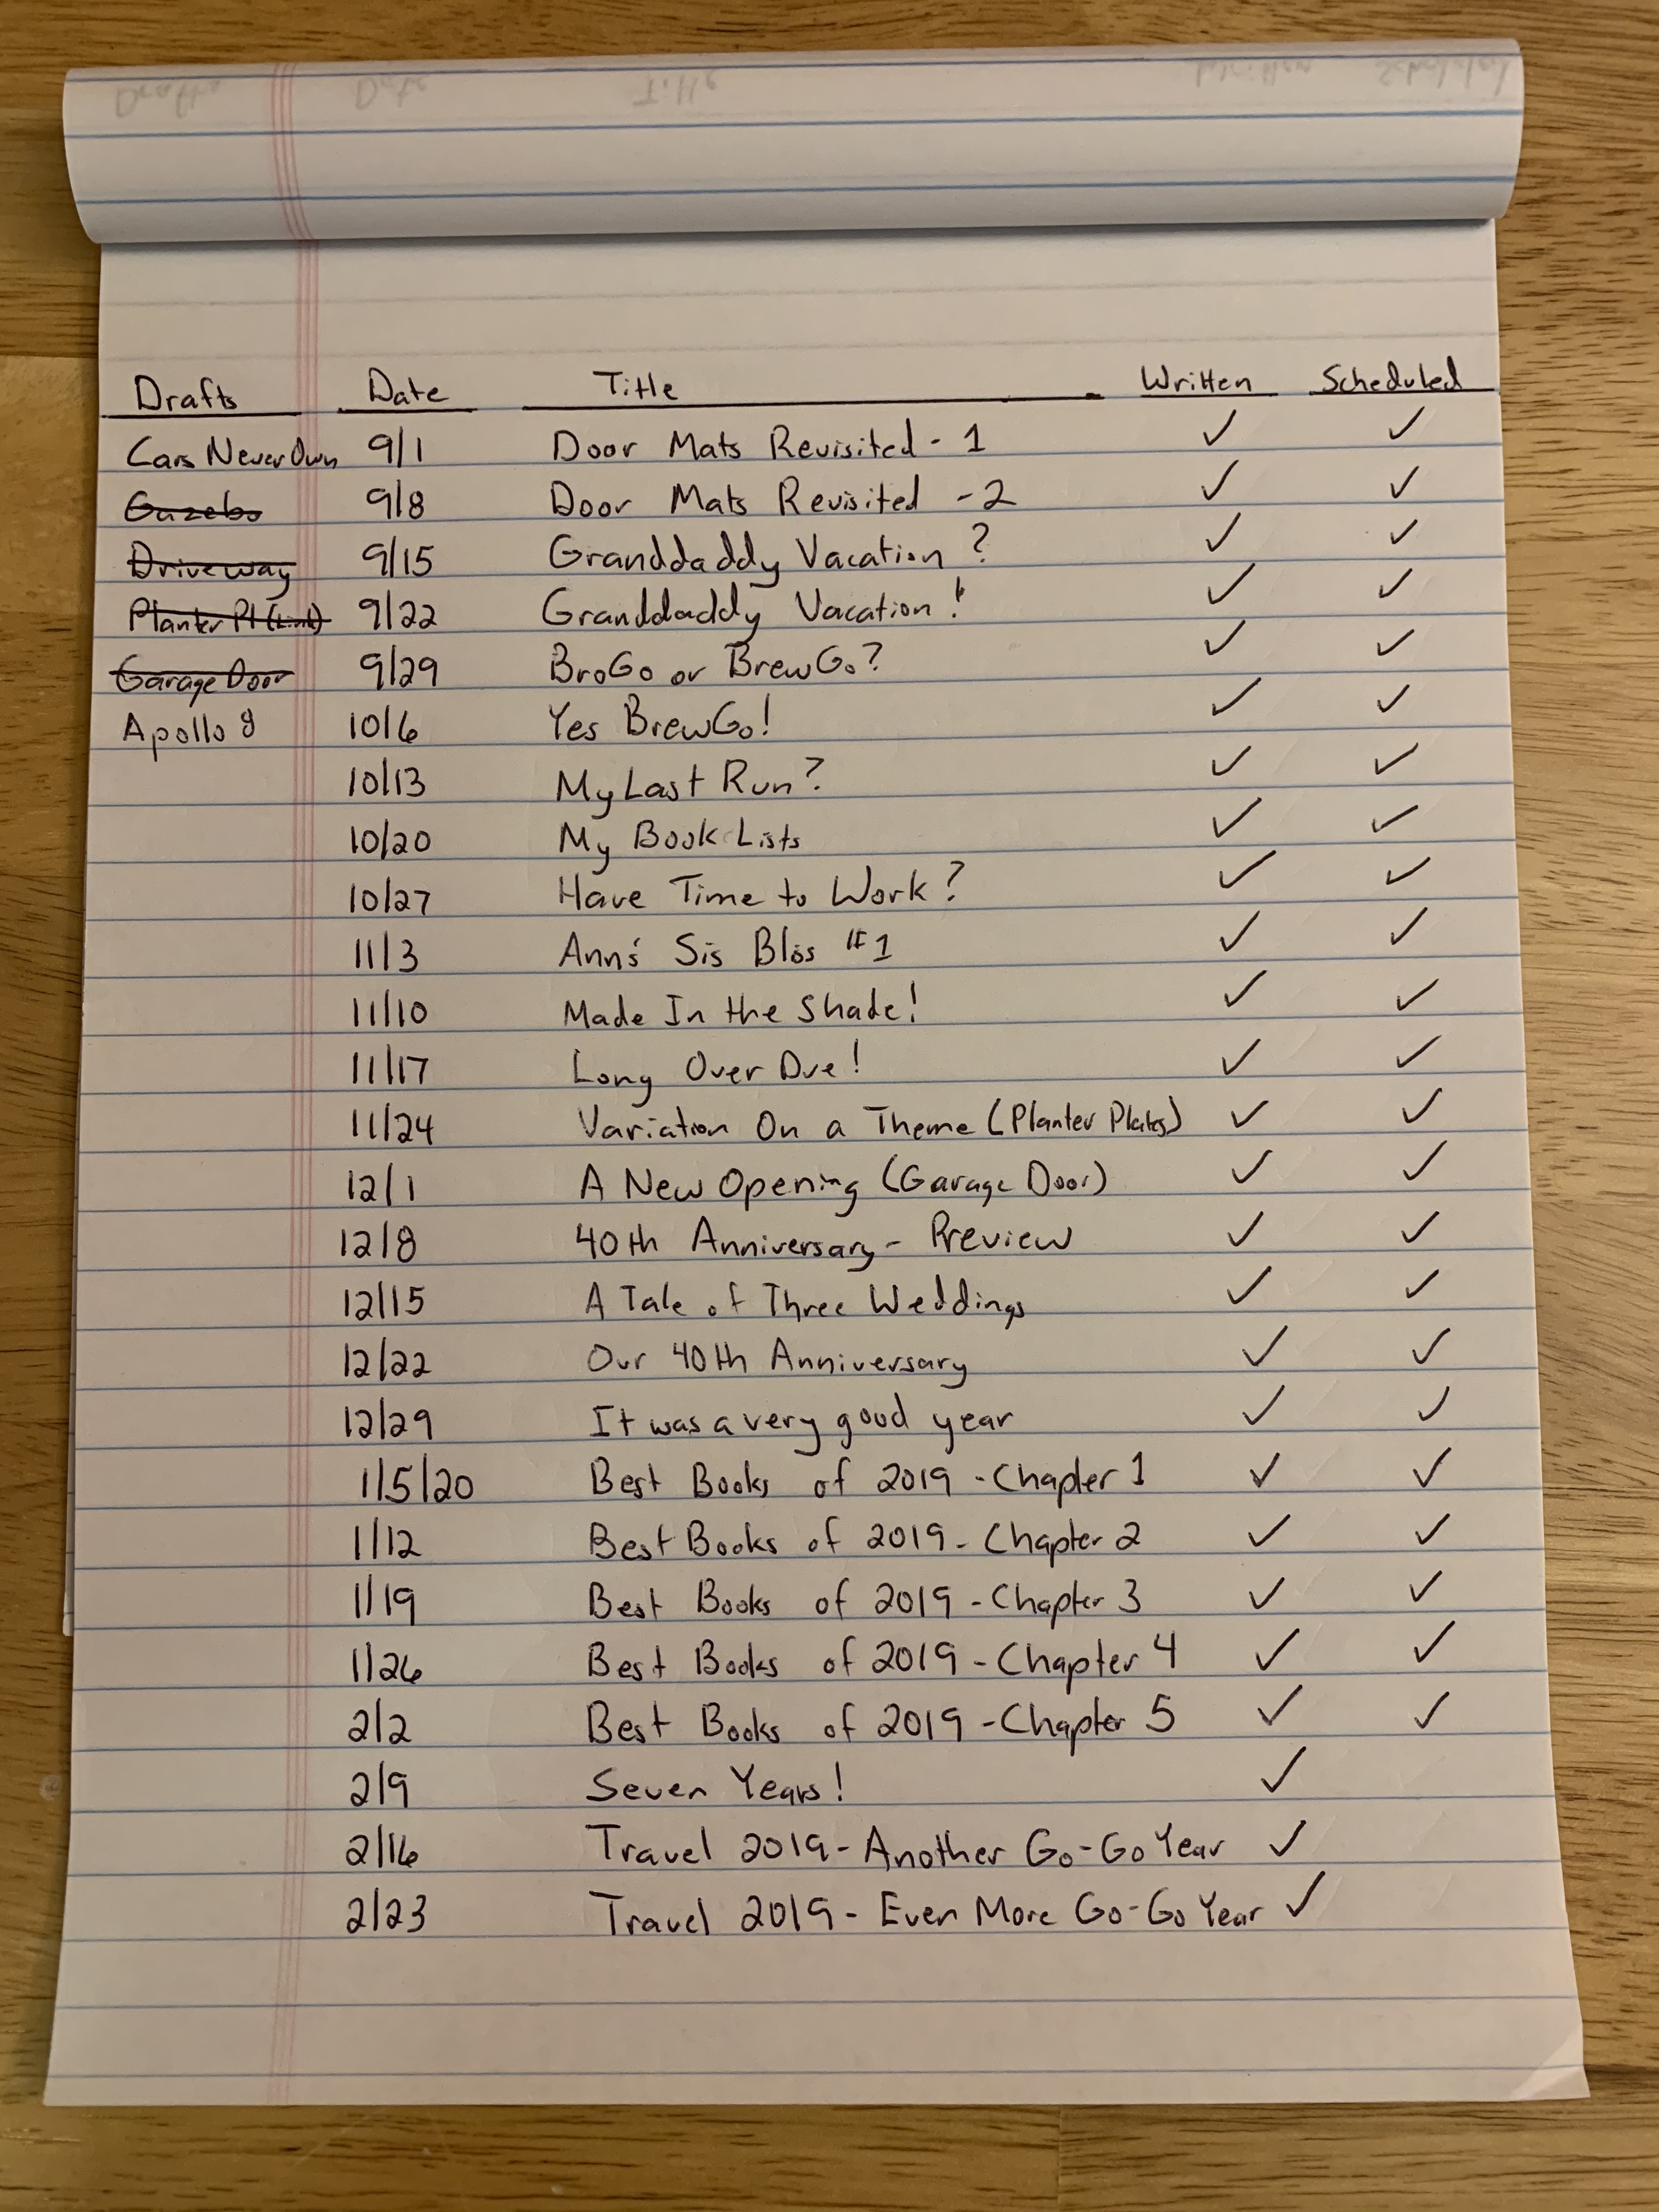 Drafts Date Title Written Scheduled
Cars Never Own 9/1 Door Mats Revisited - 1 ✓ ✓
Gazebo 9/8 Door Mats Revisited - 2 ✓ ✓
Driveway 9/15 Granddaddy Vacation ? ✓ ✓
Planter Pl (Link) 9/22 Granddaddy Vacation ! ✓ ✓
Garage Door 9/29 BroGo or BrewGo? ✓ ✓
Apollo 8 10/6 Yes BrewGo! ✓ ✓
10/13 My Last Run? ✓ ✓
10/20 My Book Lists ✓ ✓
10/27 Have Time to Work? ✓ ✓
11/3 Ann's Sis #1 ✓ ✓
11/10 Made In the Shade! ✓ ✓
11/17 Long Over Due! ✓ ✓
11/24 Variation On a Theme (Planter Plates) ✓ ✓
12/1 A New Opening (Garage Door) ✓ ✓
12/8 40th Anniversary - Preview ✓ ✓
12/15 A Tale of Three Weddings ✓ ✓
12/22 Our 40th Anniversary ✓ ✓
12/29 It was a very good year ✓ ✓
1/5/20 Best Books of 2019 - Chapter 1 ✓ ✓
1/12 Best Books of 2019 - Chapter 2 ✓ ✓
1/19 Best Books of 2019 - Chapter 3 ✓ ✓
1/26 Best Books of 2019 - Chapter 4 ✓ ✓
2/2 Best Books of 2019 - Chapter 5 ✓ ✓
2/9 Seven Years! ✓
2/16 Travel 2019 - Another Go-Go Year ✓
2/23 Travel 2019 - Even More Go-Go Year ✓